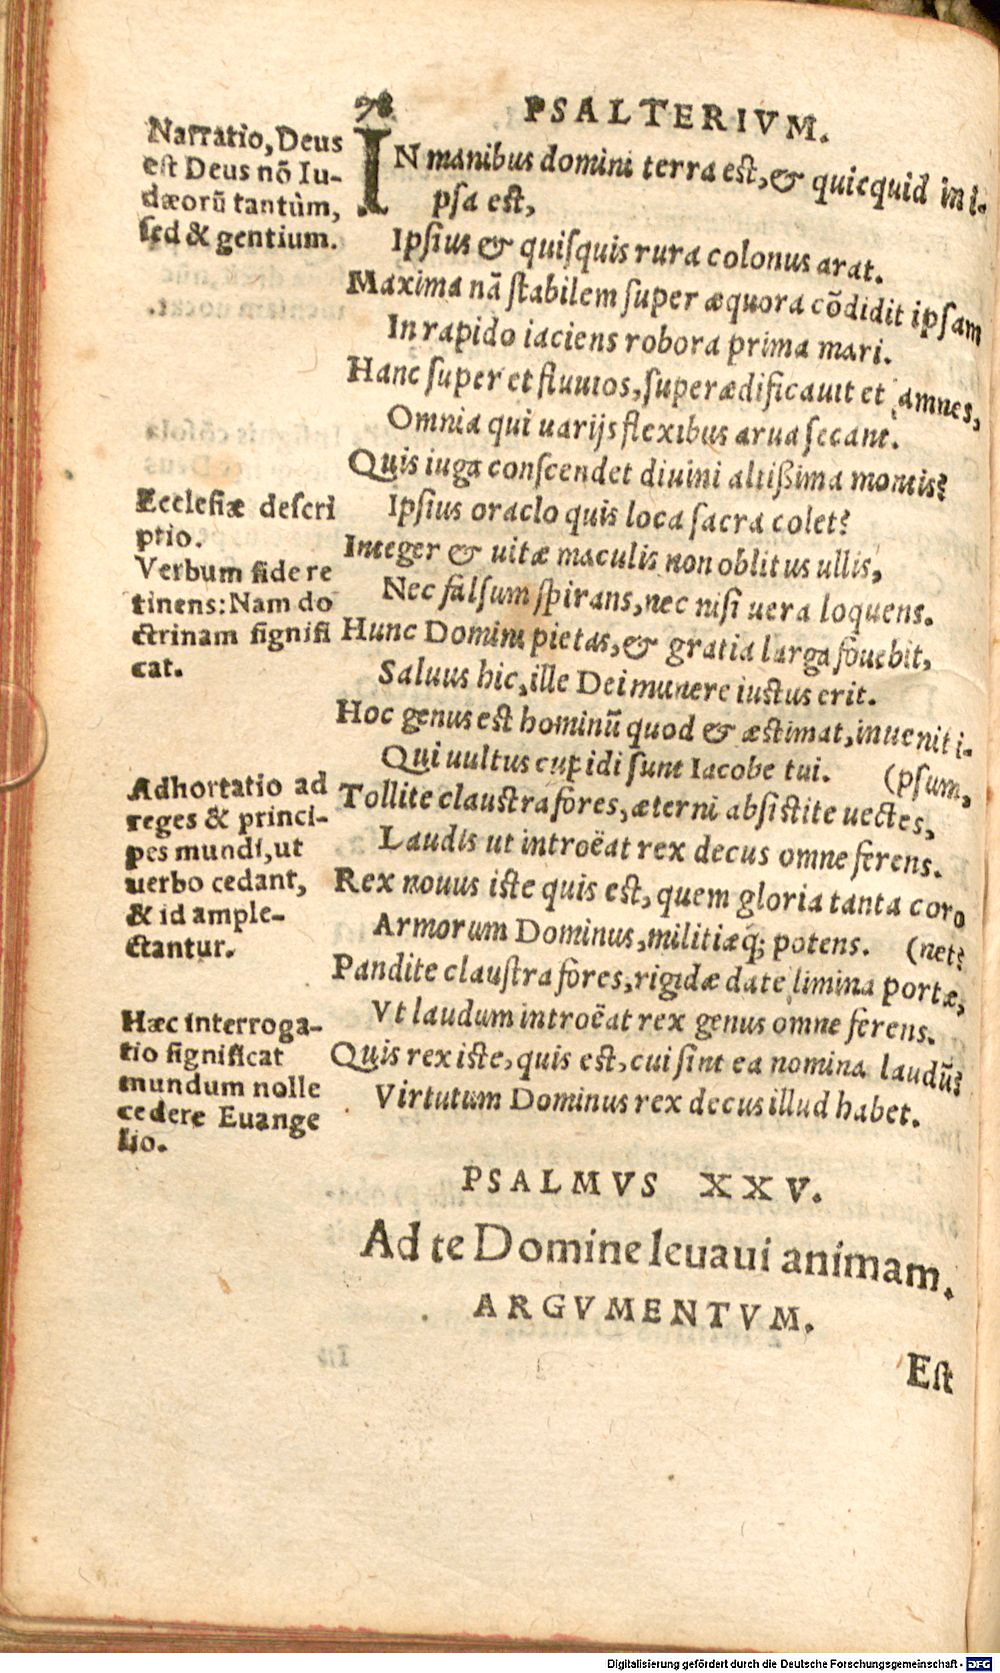 98
PSALTERIVM.
Narratio, Deus
est Deus nõ Iu-
dæorũ tantùm,
sed & gentium.
IN manibus domini terra est, & quicquid in i-
psa est,
Ipsius & quisquis rura colonus arat.
Maxima nã stabilem super æquora cõdidit ipsam
In rapido iaciens robora prima mari.
Hanc super et fluuios, superædificauit et amnes,
Omnia qui uarijs flexibus arua secant.
Quis iuga conscendet diuini altißima montis?
Ecclesiæ descri
ptio.
Verbum fide re
tinens: Nam do
ctrinam signifi
cat.
Ipsius oraclo quis loca sacra colet?
Integer & uitæ maculis non oblitus ullis,
Nec falsum spirans, nec nisi uera loquens.
Hunc Domini pietas, & gratia larga fouebit,
Saluus hic, ille Dei munere iustus erit.
Hoc genus est hominũ quod & æstimat, inuenit i-
Qui uultus cupidi sunt Iacobe tui. (psum,
Adhortatio ad
reges & princi-
pes mundi, ut
uerbo cedant,
& id ample-
ctantur.
Tollite claustra fores, æterni absistite uectes,
Laudis ut introëat rex decus omne ferens.
Rex nouus iste quis est, quem gloria tanta coro
Armorum Dominus, militiæq; potens. (net?
Pandite claustra fores, rigidæ date limina portæ,
Vt laudum introëat rex genus omne ferens.
Hæc interroga-
tio significat
mundum nolle
cedere Euange
lio.
Quis rex iste, quis est, cui sint ea nomina laudũ?
Virtutum Dominus rex decus illud habet.
PSALMVS XXV.
Ad te Domine leuaui animam.
ARGVMENTVM.
Est
Digitalisierung gefördert durch die Deutsche Forschungsgemeinschaft - DFG